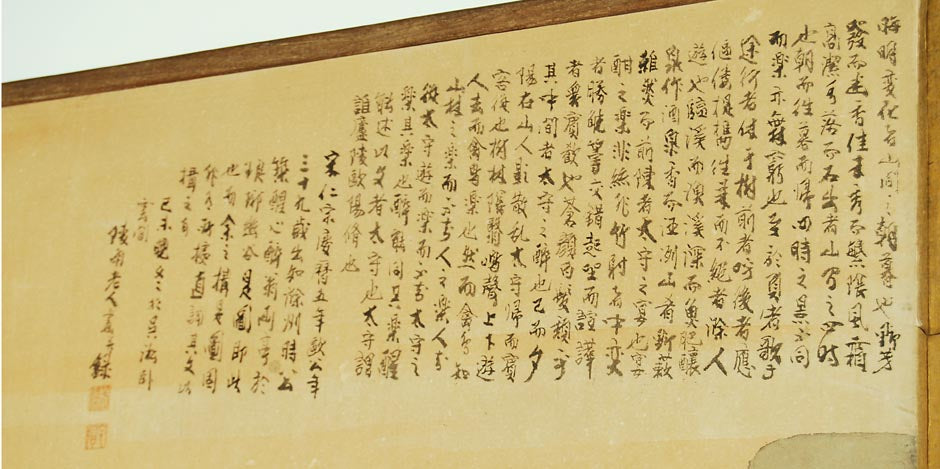 晦明変化者山間之朝暮也野芳
發而幽香佳木秀而繁陰風霜
高潔水落而石出者山間之四時
也朝而往暮而帰四時之景不同
而楽亦無窮也至於負者歌于
途行者休于樹前者呼後者應
傴僂提攜往来而不絶者滁人
遊也臨溪而漁溪深而魚肥釀
泉作酒泉香而酒洌山肴野蔌
雜然而前陳者太守之宴也宴
酣之楽非絲非竹射者中奕
者勝觥籌交錯起坐而諠譁
者衆賓歓也蒼顔白髪頽乎
其中間者太守之酔也已而夕
陽在山人影散乱太守帰而賓
客從也樹林陰翳鳴聲上下遊
人去而禽鳥楽也然而禽鳥知
山林之楽而不知人之楽人知
從太守遊而楽而不知太守之
楽其楽也醉能同其楽醒
能述以文者太守也太守謂
誰廬陵歐陽脩也
宋仁宗慶暦五年歐公年
三十九歳出知滁州時公
築醒心醉翁両亭於
琅琊幽谷是圖即此
也而余之構是圖固
直調其文以
揖之
己未晩
老人 録